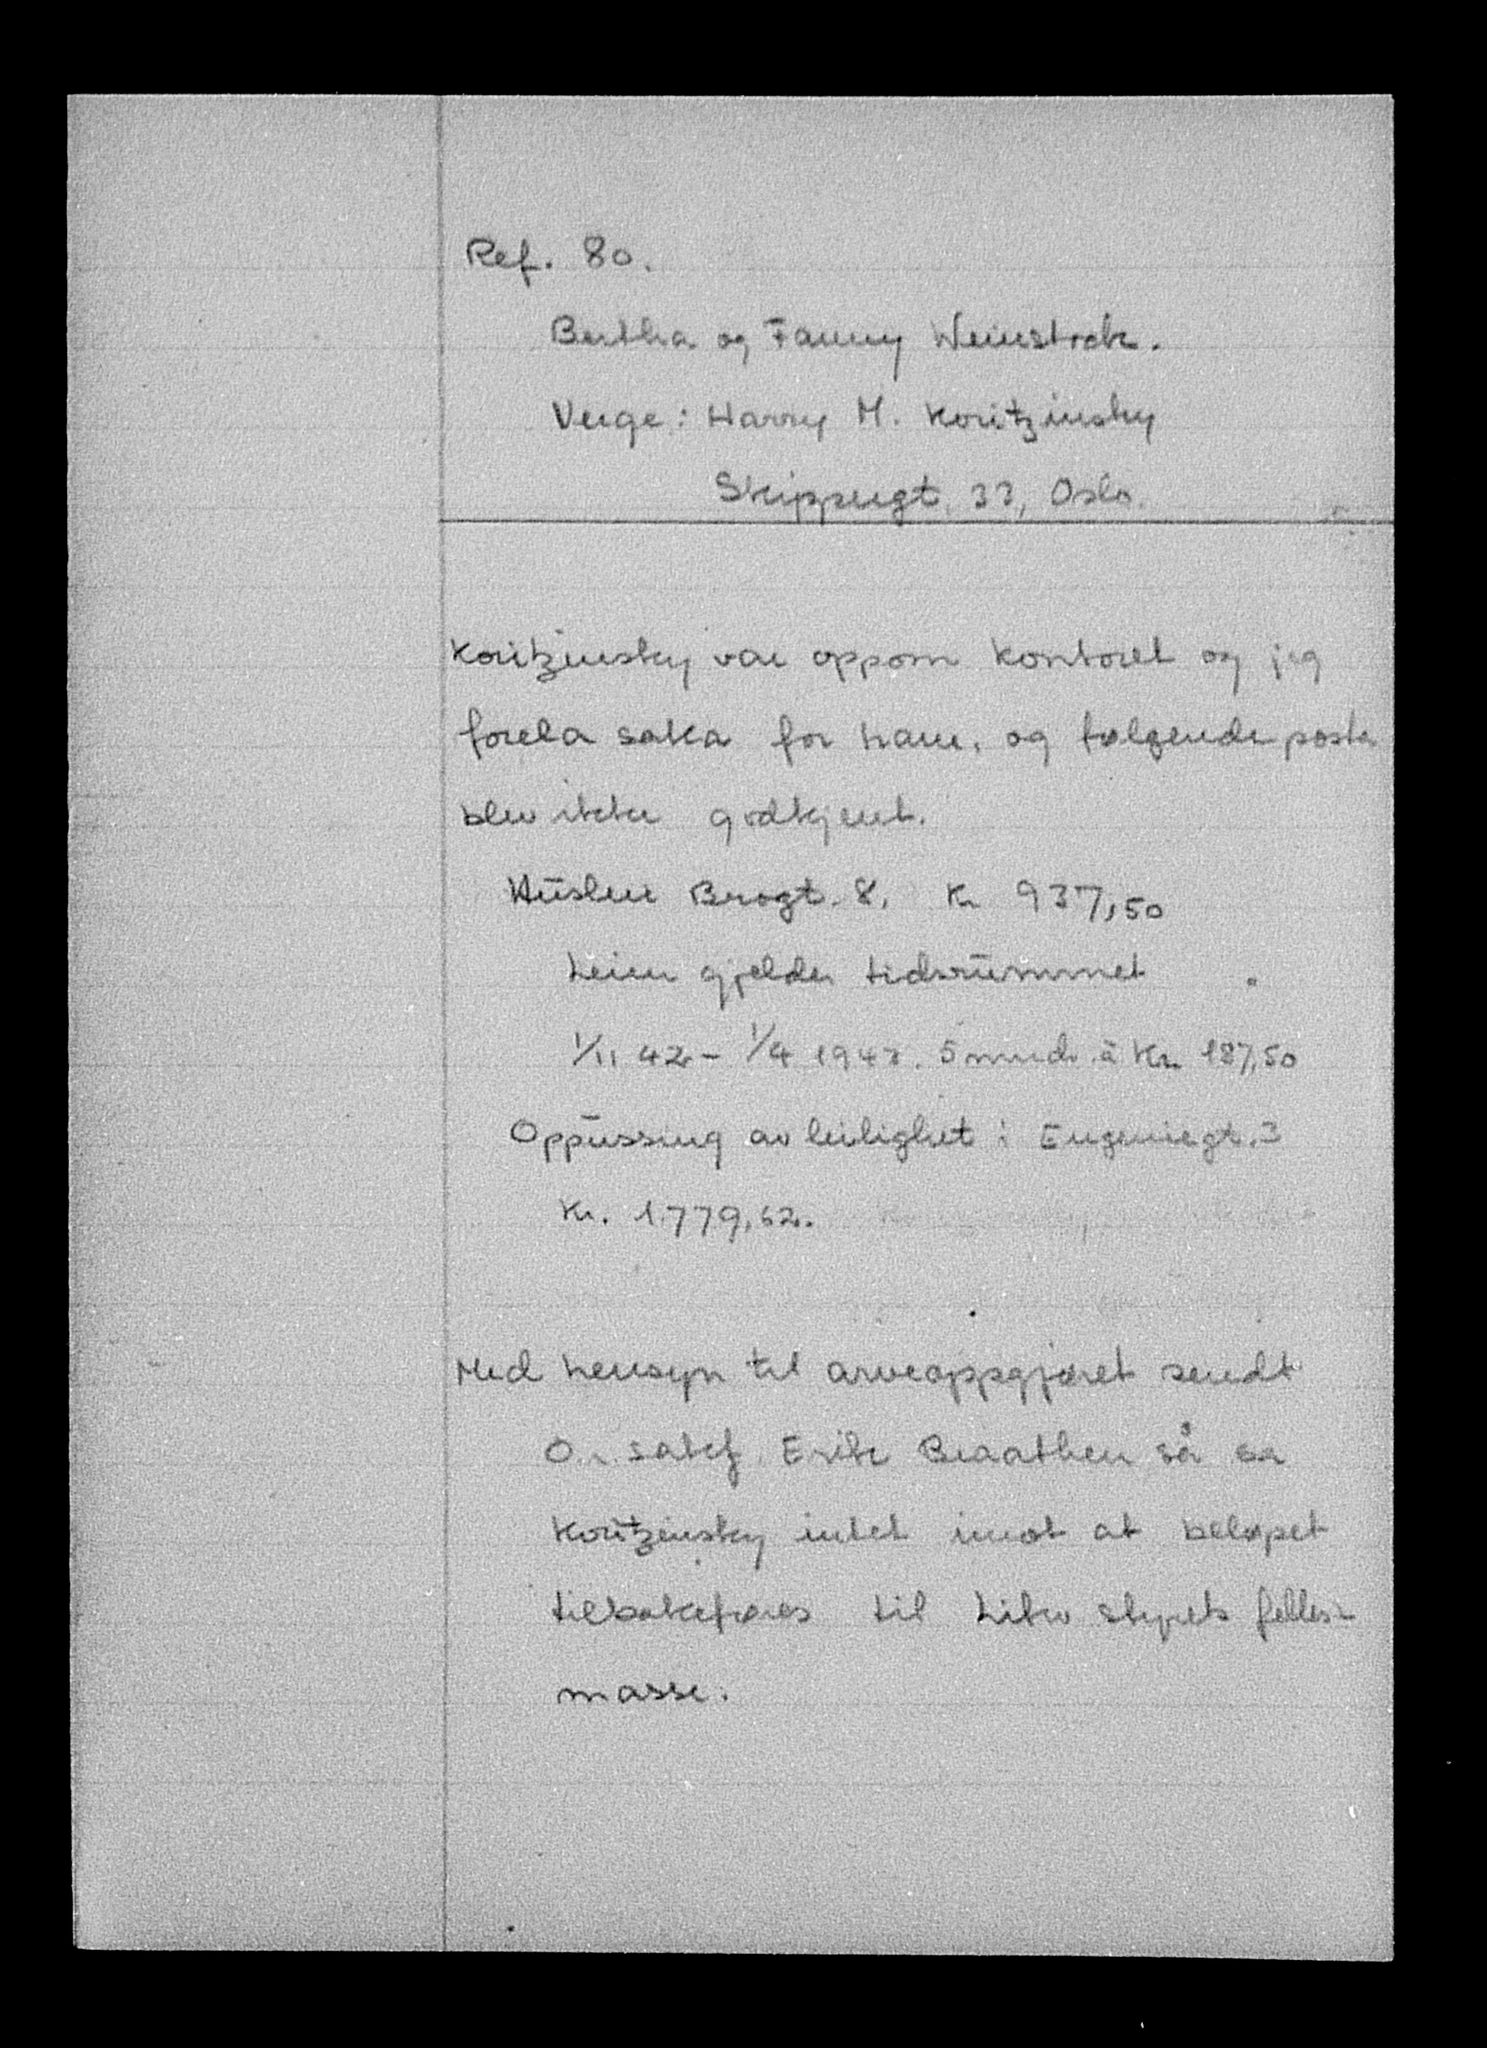 Ref. 80.
Bertha og Fanny Weinstock.
Verge: Harry M. Koritzinsky
Skippergt. 33, Oslo.
Koritzinsky var oppom kontoret og jeg
forela saka for ham, og følgende poster
blev ikke godkjent.
Husleie Brogt. 8, Kr 937,50
Leien gjelder tidsrummet
1/11 42 - 1/4 1943. 5 mndr. à Kr. 187,50
Oppussing av leilighet i Eugeniegt. 3
Kr. 1.779,62.
Med hensyn til arveoppgjøret sendt
O.r.sakf. Erik Braathen så sa
Koritzinsky intet imot at beløpet
tilbakeføres til Likv. styrets felles-
masse.